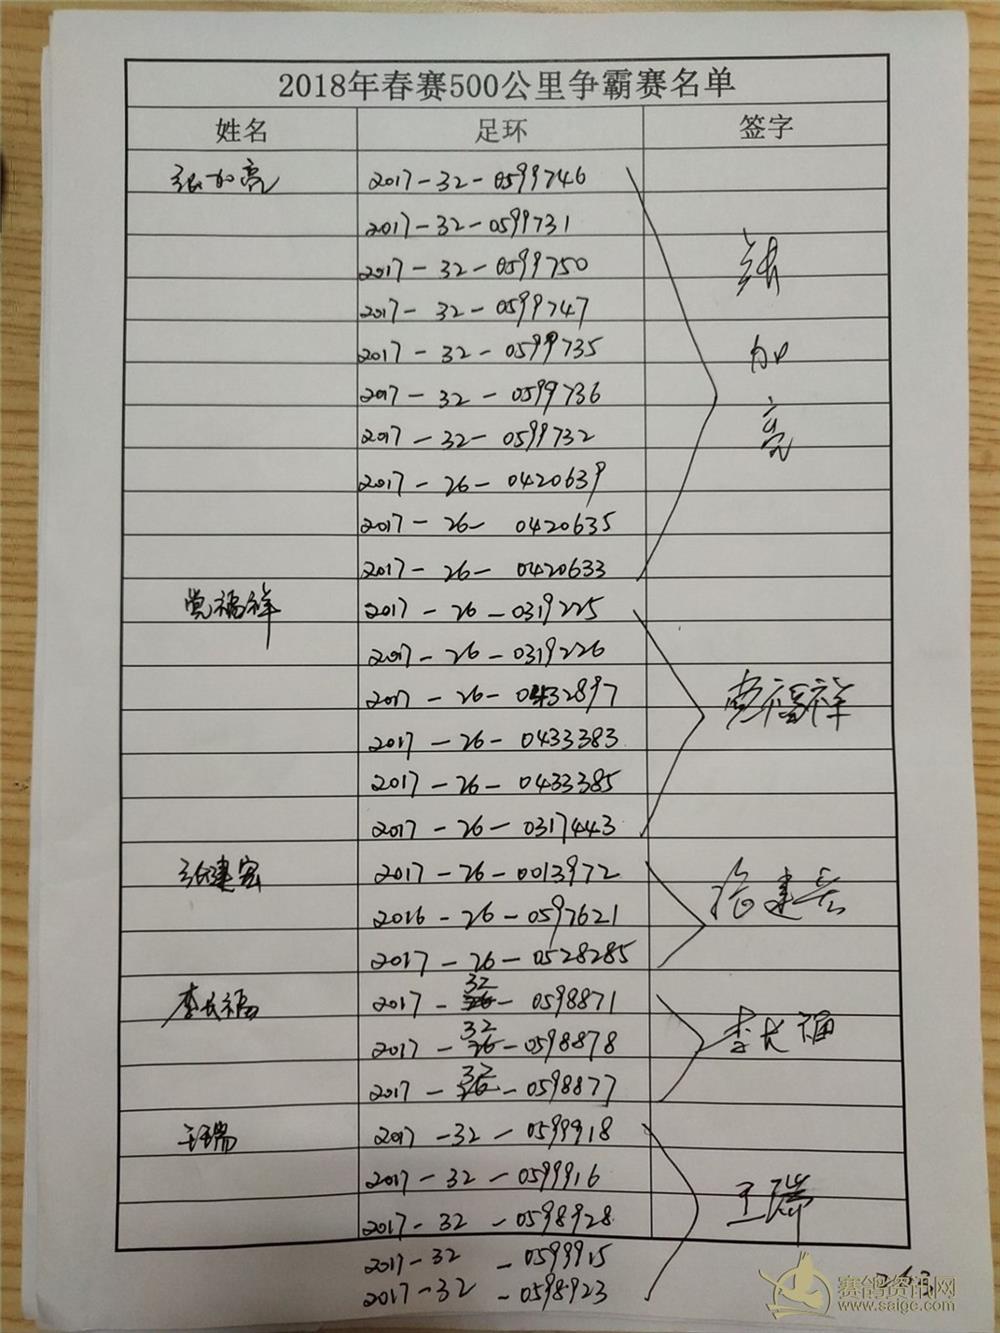 2018年春赛500公里争霸赛名单
姓名 足环 签字
张加亮 2017-32-0599746
2017-32-0599731
2017-32-0599750
2017-32-0599747
2017-32-0599735
2017-32-0599736
2017-32-0599732
2017-26-0420639
2017-26-0420635
2017-26-0420633
张加亮
党福祥 2017-26-0319225
2017-26-0319226
2017-26-0432897
2017-26-0433383
2017-26-0433385
2017-26-0317443
党福祥
张建宏 2017-26-0013972
2016-26-0597621
2017-26-0528285
张建宏
李长福 2017-32-0598871
2017-32-0598878
2017-32-0598877
李长福
王瑞 2017-32-0599918
2017-32-0599916
2017-32-0598928
2017-32-0599915
2017-32-0598923
王瑞
赛鸽资讯网
www.saigc.com